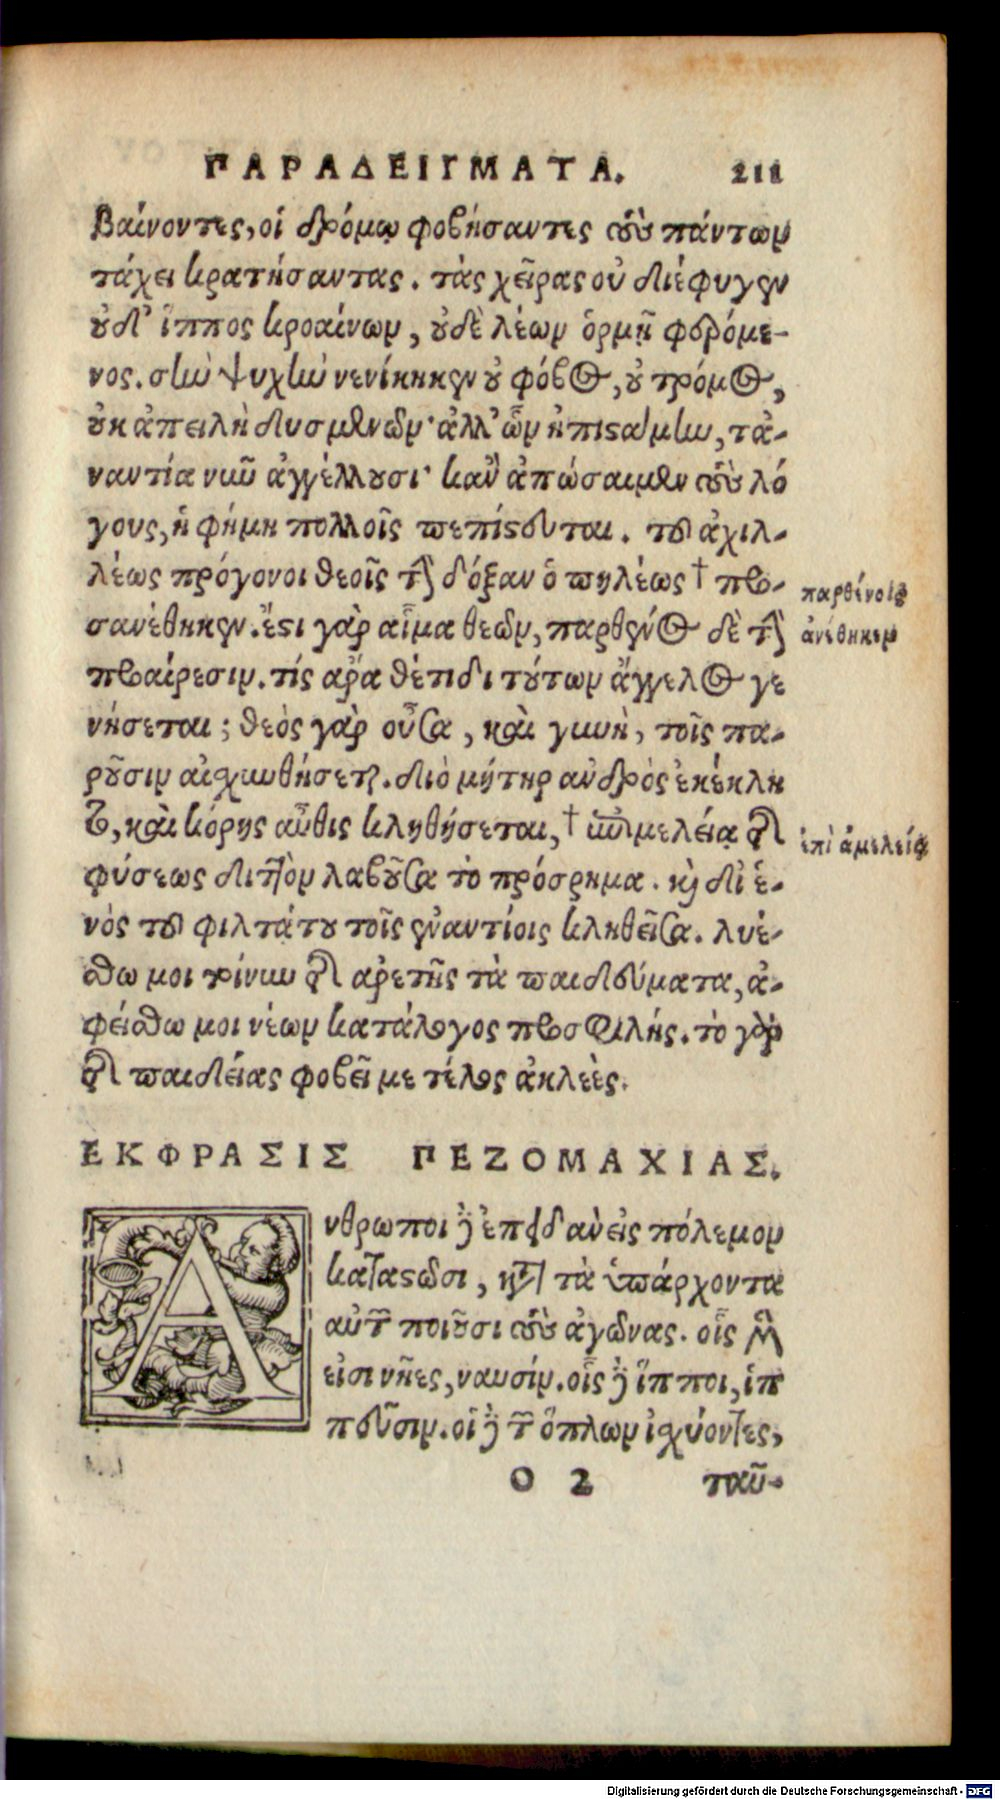 ΠΑΡΑΔΕΙΓΜΑΤΑ. 211
βαίνοντες, οἱ δρόμῳ φοβήσαντες τοὺς πάντων
τάχει κρατήσαντας. τὰς χεῖρας οὐ διέφυγεν
οὐδ' ἵππος κροαίνων, οὐδὲ λέων ὁρμῇ φερόμε-
νος. σὴν ψυχὴν νενίκηκεν οὐ φόβος, οὐ τρόμος,
οὐκ ἀπειλὴ δυσμενῶν· ἀλλ' ὧν ἠπιστάμην, τἀ-
ναντία νῦν ἀγγέλλουσι· κἂν ἀπώσαιμεν τοὺς λό
γους, ἡ φήμη πολλοῖς πεπίστευται. τοῦ ἀχιλ-
λέως πρόγονοι θεοῖς τὴν δόξαν ὁ πηλέως † προ-
σανέθηκεν. ἔστι γὰρ αἷμα θεῶν, παρθένος δὲ τὴν
προαίρεσιν. τίς ἄρα θέτιδι τούτων ἄγγελος γε
νήσεται; θεὸς γὰρ οὖσα, καὶ γυνὴ, τοῖς πα-
ροῦσιν αἰσχυνθήσεται. διὸ μήτηρ ἀνδρὸς ἐκέκλη
το, καὶ κόρης αὖθις κληθήσεται, † ἐπιμελείᾳ τῆς
φύσεως διττὸν λαβοῦσα τὸ πρόσρημα. καὶ δι' ἑ-
νὸς τοῦ φιλτάτου τοῖς ἐναντίοις κληθεῖσα. λυέ-
σθω μοι τοίνυν τῆς ἀρετῆς τὰ παιδεύματα, ἀ-
φείσθω μοι νέων κατάλογος προσφιλής. τὸ γὰρ
τῆς παιδείας φοβεῖ με τέλος ἀκλεὲς.
παρθένοις
ἀνέθηκεν
ἐπὶ ἀμελείᾳ
ΕΚΦΡΑΣΙΣ ΠΕΖΟΜΑΧΙΑΣ.
Ανθρωποι μὲν ἐπειδὰν εἰς πόλεμον
καταστῶσι, κατὰ τὰ ὑπάρχοντα
αὐτῶν ποιοῦσι τοὺς ἀγῶνας. οἷς μὲν
εἰσι νῆες, ναυσίν. οἷς δὲ ἵπποι, ἱπ
πεῦσιν. οἱ δὲ τῶν ὅπλων ἰσχύοντες,
O 2 ταῦ-
Digitalisierung gefördert durch die Deutsche Forschungsgemeinschaft - DFG